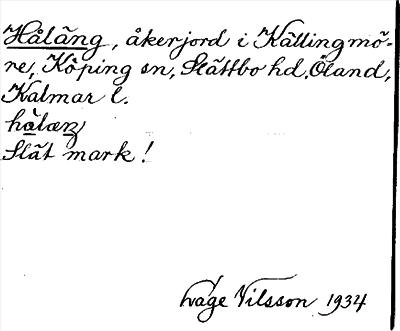 Håläng, åkerjord i Källingmö-
re, Köping sn, Slättbo hd, Öland,
Kalmar l.
hàlæŋ
Slät mark!
Åage Nilsson 1934